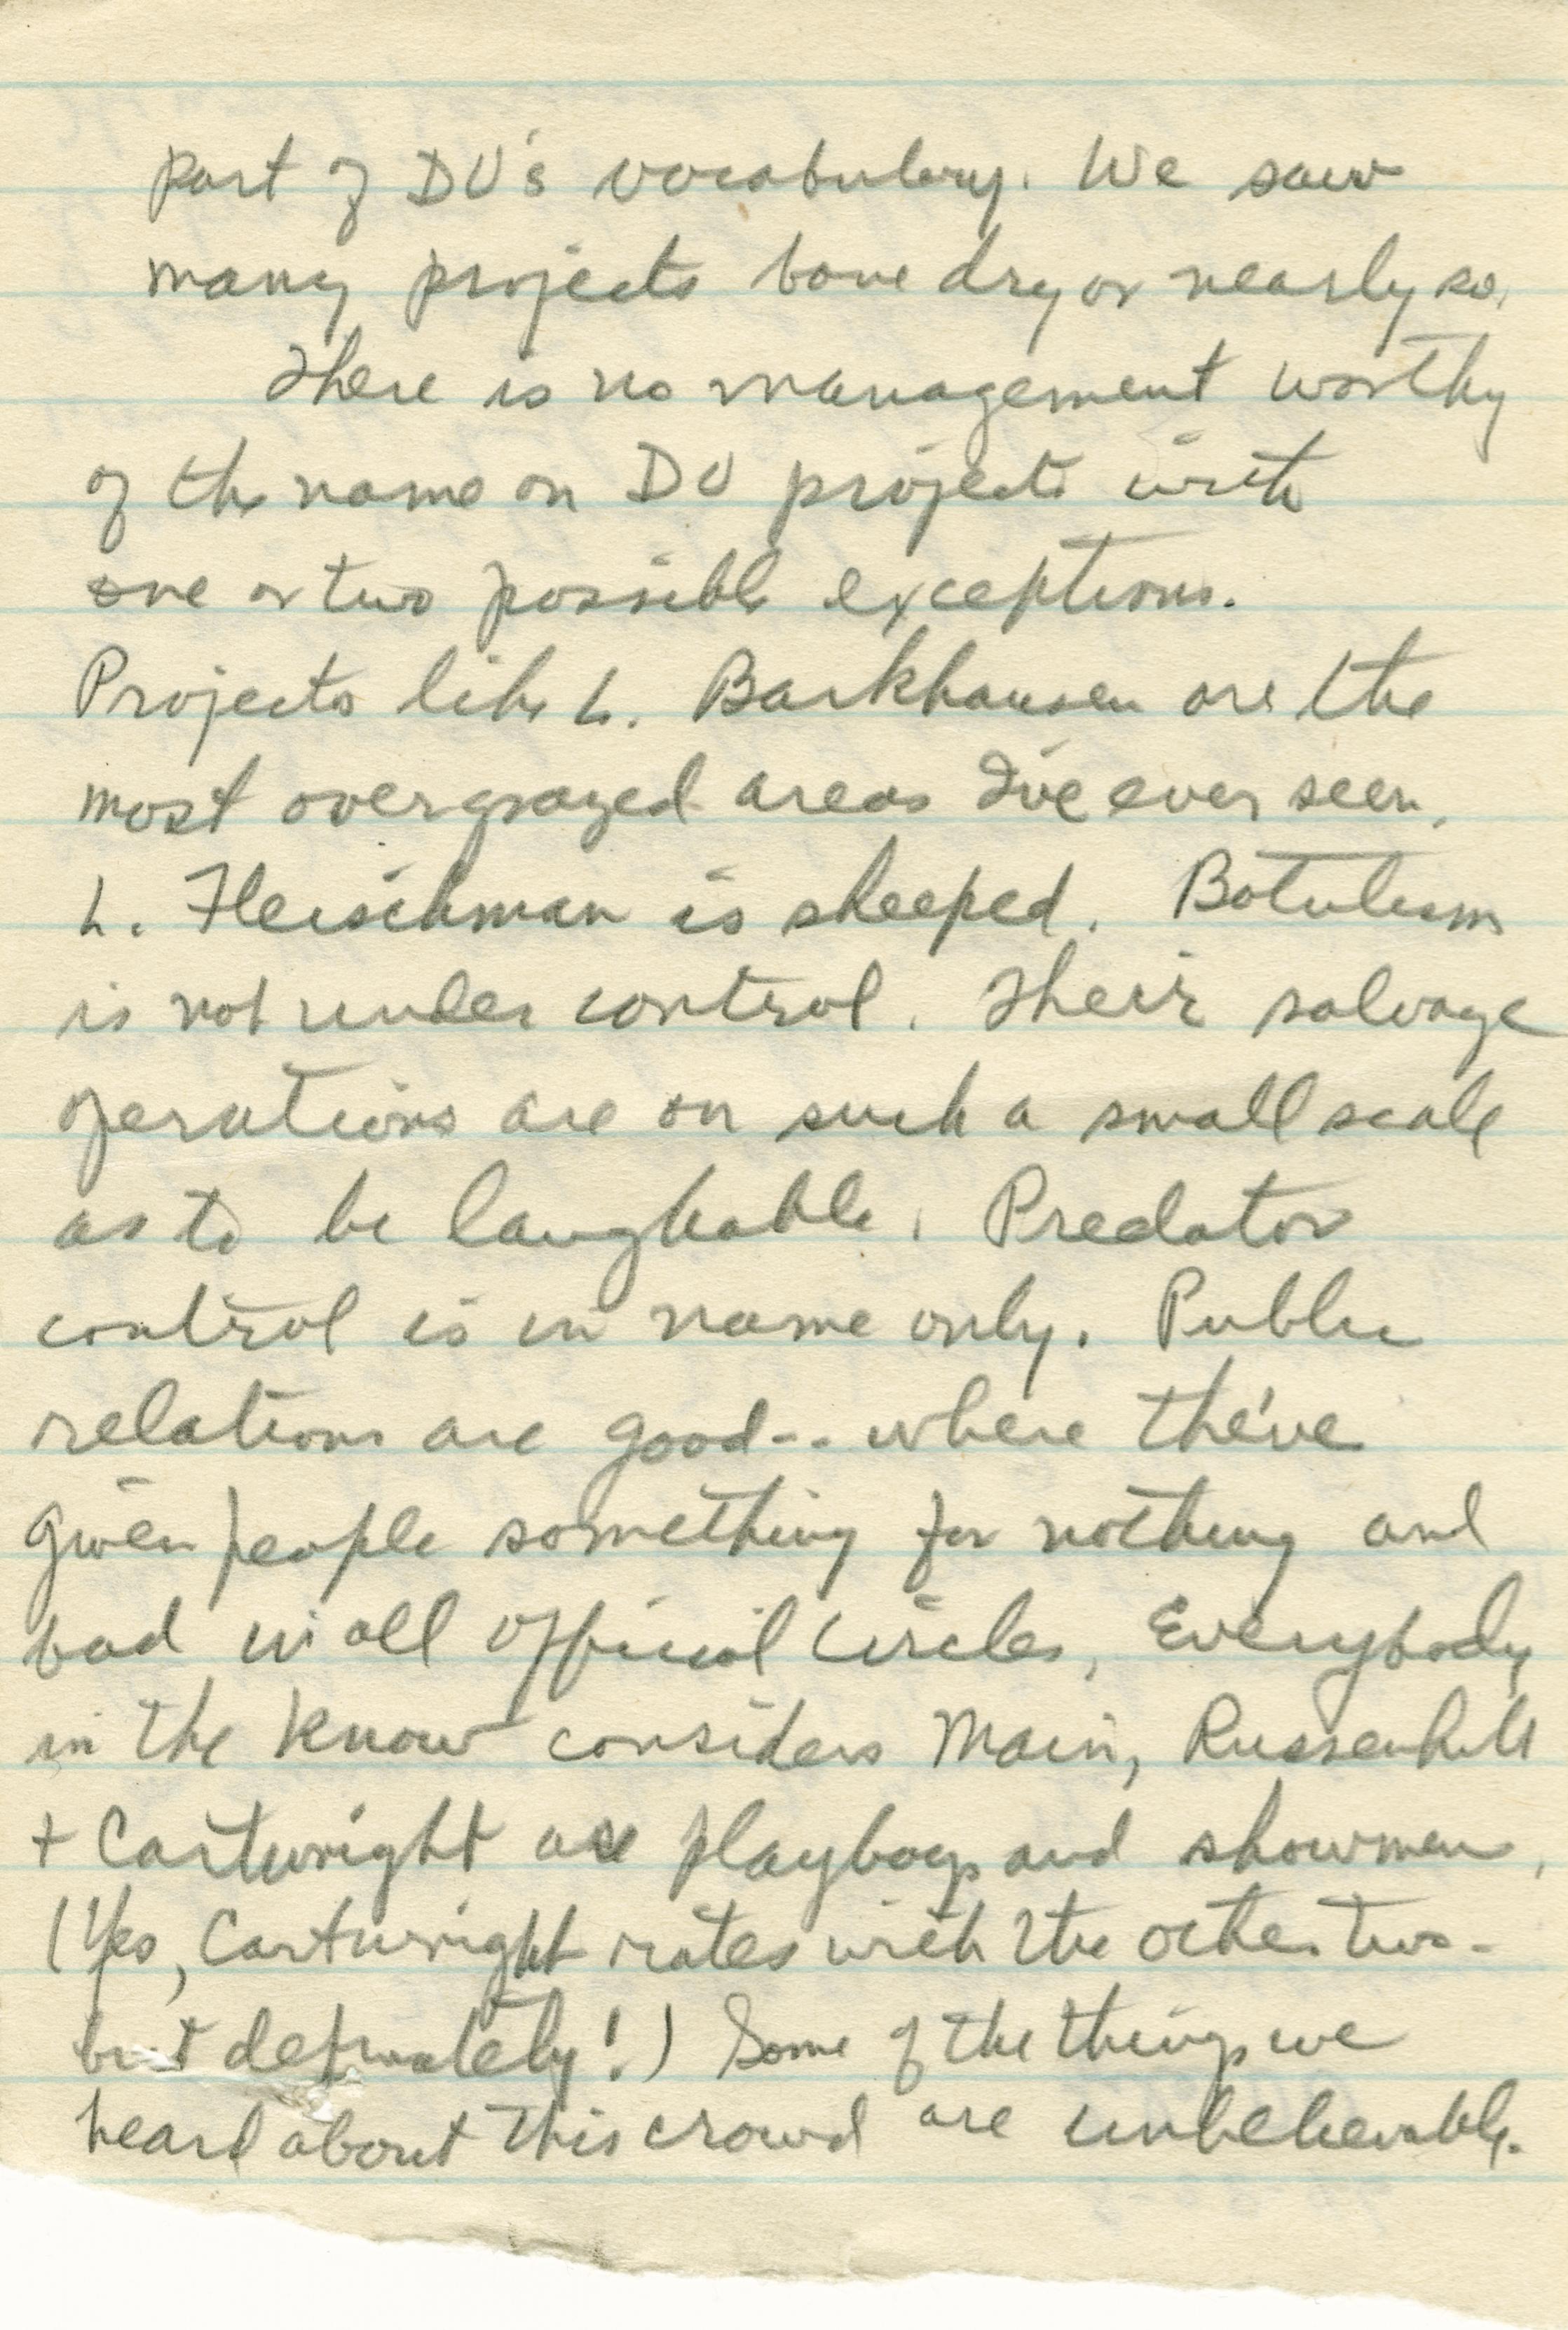 part of DU's vocabulary. We saw
many projects bone dry or nearly so.
There is no management worthy
of the name on DU projects with
one or two possible exceptions.
Projects like L. Barkhausen are the
most overgrazed areas I've ever seen.
L. Fleischman is sheeped. Botulism
is not under control. Their salvage
operations are on such a small scale
as to be laughable. Predator
control is in name only. Public
relations are good -- where the've
given people something for nothing and
bad in all official circles. Everybody
in the know considers Main, Russenholt
+ Cartwright as playboys and showmen.
(Yes, Cartwright rates with the other two -
but definately!) Some of the things we
heard about this crowd are unbelievable.